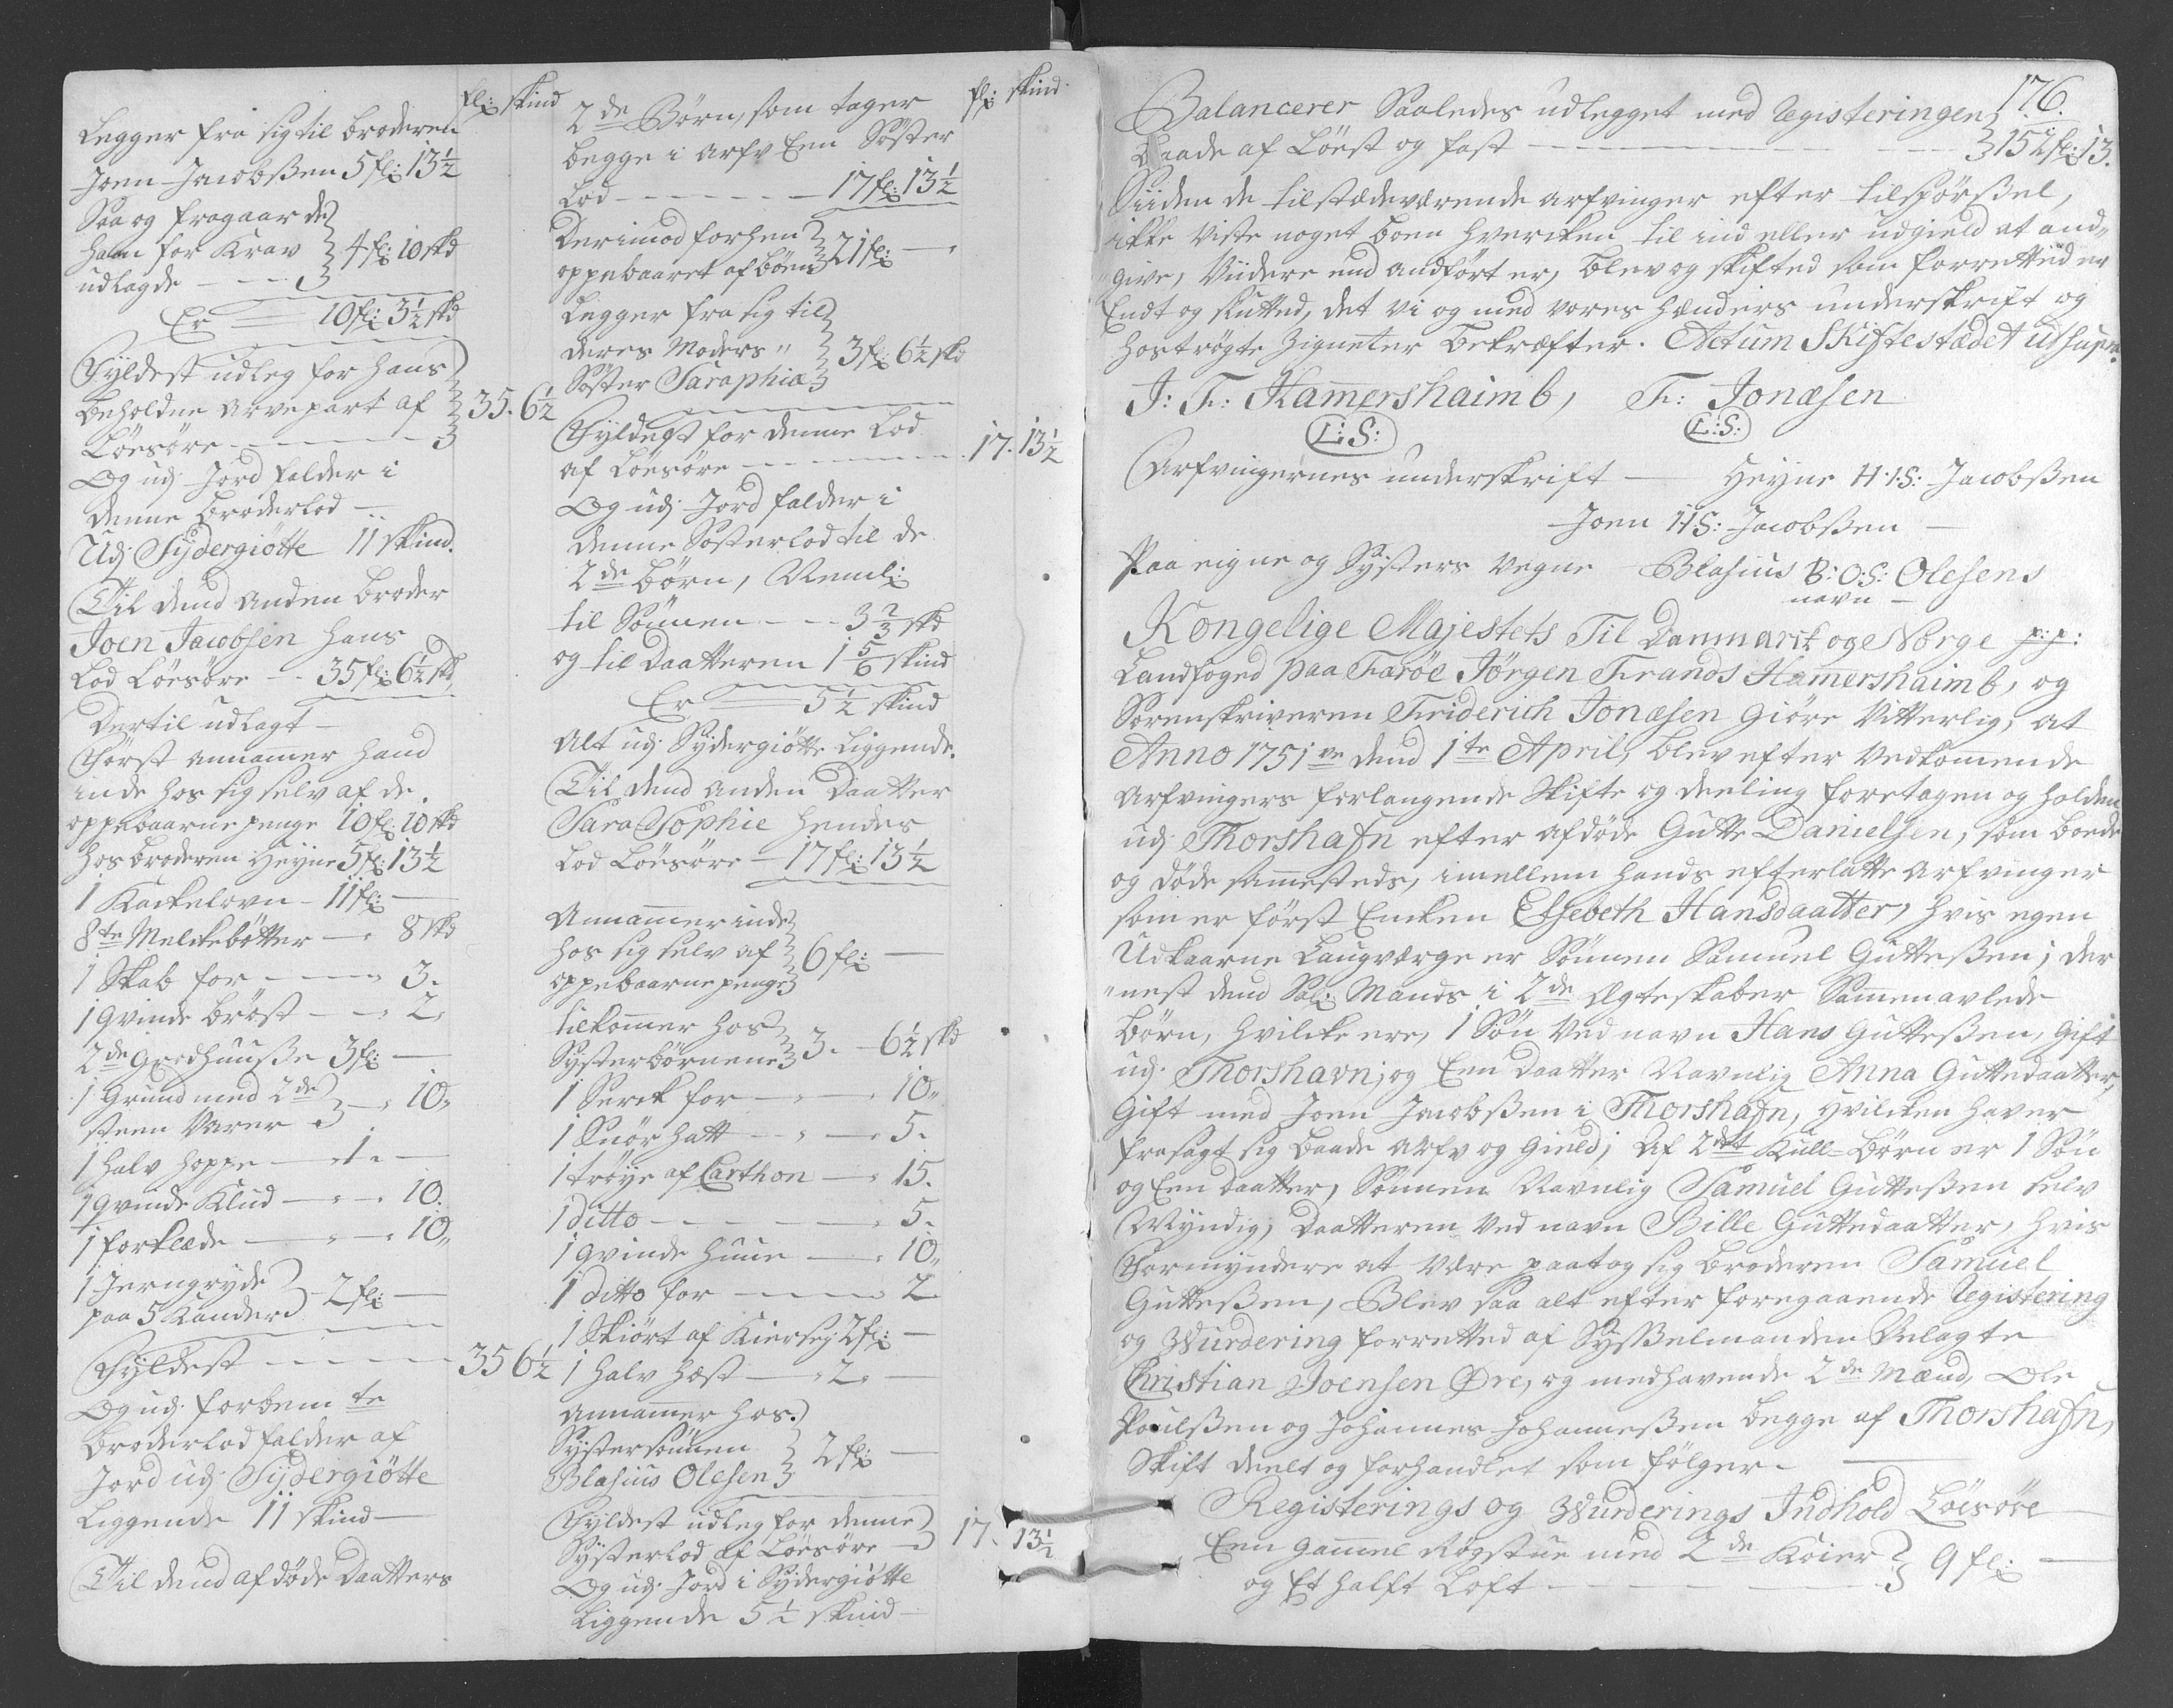 fl: skind
Legger fra sig til broderen
Joen Jacobßen 5 fl: 13½
Saa og fragaar de
ham for Krav
udlagde - - - 4 fl: 10 skd
Er 10 fl: 3½ skd
Fyldest udleg for hans
beholdne Arvepart af
Löesöre - - - - - 35. 6½
Og udj Jord falder i
denne broderlod -
Udj Sÿdergiötte 11 skind.
Til dend anden broder
Joen Jacobsen hans
Lod Löesöre - - 35 fl: 6½ skd,
Dertil udlagt -
Först annammer hand
inde hos sig selv af de
oppebaarne penge 10 fl: 10 skd
hos broderen Heÿne 5 fl: 13½
1 Kackelovn - 11 fl: -
8te Melckebötter - " 8 skd
1 Skab for - - - - " 3.
1 qvinde bröst - - " 2"
2de Grodhuuße 3 fl: -
1 Grund med 2de
steen Varer - " 10"
1 halv hoppe - " 1 " -
1 qvinde Klud - " - " 10.
1 forklæde - " - " 10"
1 Jerngrÿde
paa 5 Kander - 2 fl: -
Fyldest - - - - - 35 6½
Og udj forbem te
broderlod falder af
Jord udj Sÿdergiötte
Liggende 11 skind -
Til dend afdöde Daatters
fl: skind
2de Börn, som tager
begge i arfv Een Söster
Lod - - - - - - 17 fl: 13½
Derimod forhen
oppebaaret af böen 21 fl: - "
Legger fra sig til
deres Moders "
Söster Saraphia 3 fl: 6½ skd
Fyldest for denne Lod
af Löesöre - - - - - - 17. 13½
Og udj Jord falder i
denne Sösterlod til de
2de börn, Neml:
til Sönnen - - - 3⅔ skd
og til Daatteren 1⅚ skind
Er 5½ skind
Alt udj Sÿdergiötte Liggende.
Til dend anden Daatter
Sara Sophie hendes
Lod Löesöre - 17 fl: 13½
Annammer inde
hos sig selv af
oppebaarne penge 6 fl: -
tilkommer hos
Sÿsterbörnene 3. - 6½ skd
1 Serck for - " - " 10"
1 Snörhatt - - " - " 5.
1 tröÿe af Carthon - " 15.
1 ditto - - - - - " 5.
1 qvinde huue - " 10"
1 ditto for - - - - " 2
1 Skiört af Kiersej 2 fl: -
1 halv hest - " 2. -
Annammer hos
Sÿstersönnen
Blasius Olesen 2 fl: -
Fyldest udleg for denne
Sÿsterlod af Löesöre - 17. 13½
Og udj Jord i Sÿdergiötte
Liggende 5½ skind -
176.
Balancerer Saaledes udlegget med Registeringen
baade af Löest og fast - - - - - 152 fl: 13.
Siiden de tilstædeværende arfvinger efter tilspörßel,
ikke viste noget boen hvercken til ind eller udgield at and"
"give, Viidere end andfört er, blev og skifted som forretted er
Endt og sluttet, det vi og med vores hænders underskrift og
hoströgte Zigneter bekræfter. Actum Skiftestædet ut supra.
J: F: Hamershaimb, F: Jonæsen
L:S: L:S:
Arfvingernes underskrift - Heyne H:I:S: Jacobßen
Joen I:I:S: Jacobßen -
Paa eigne og Sÿsters vegne Blasius B:O:S: Olesens
navn -
Kongelige Majestets Til Danmark og Norge p:p:
Landfoged paa Færöe Jörgen Frands Hamershaimb, og
Sorenskriveren Friderich Jonæsen Giöre Vitterlig, at
Anno 1751 ve dend 1te April, blev efter vedkommende
Arfvingers forlangende Skifte og deeling foretagen og holden
udj Thorshafn efter afdöde Gutte Danielsen, som boede
og döde sammesteds, imellem hands efterlatte Arfvinger
som er först Encken Elsebeth Hansdaatter, hvis egen
Udkaarne Laugværge er Sönnen Samuel Gutteßen; der
"nest dend Sal: Mands i 2de Egteskaber Sammenavlede
börn, hvilcke ere, 1 Sön ved navn Hans Gutteßen, Gift
udj Thorshavn; og Een Daatter Navnlig Anna Guttedaatter,
Gift med Joen Jacobßen i Thorshafn, hvilcken haver
frasagt sig baade arfv og Gield; Af 2det Kull-börn er 1 Sön
og Een Daatter, Sönnen Navnlig Samuel Gutteßen selv
Mÿndig, Daatteren ved navn Bille Guttedaatter, hvis
Formÿndere at være paatog sig broderen Samuel
Gutteßen, Blev saa alt efter foregaaende Registering
og Wurdering forretted af Sÿsßelmanden Velagte
Christian Joensen Øre, og medhavende 2de Mænd, Ole
Poulßen og Johannes Johanneßen begge af Thorshafn,
Skift deelt og forhandlet som fölger -
Registerings og Wurderings Indhold Löesöre
Een gammel Rogstue med 2de Köier
og Et halft Loft - - - - - 9 fl: -